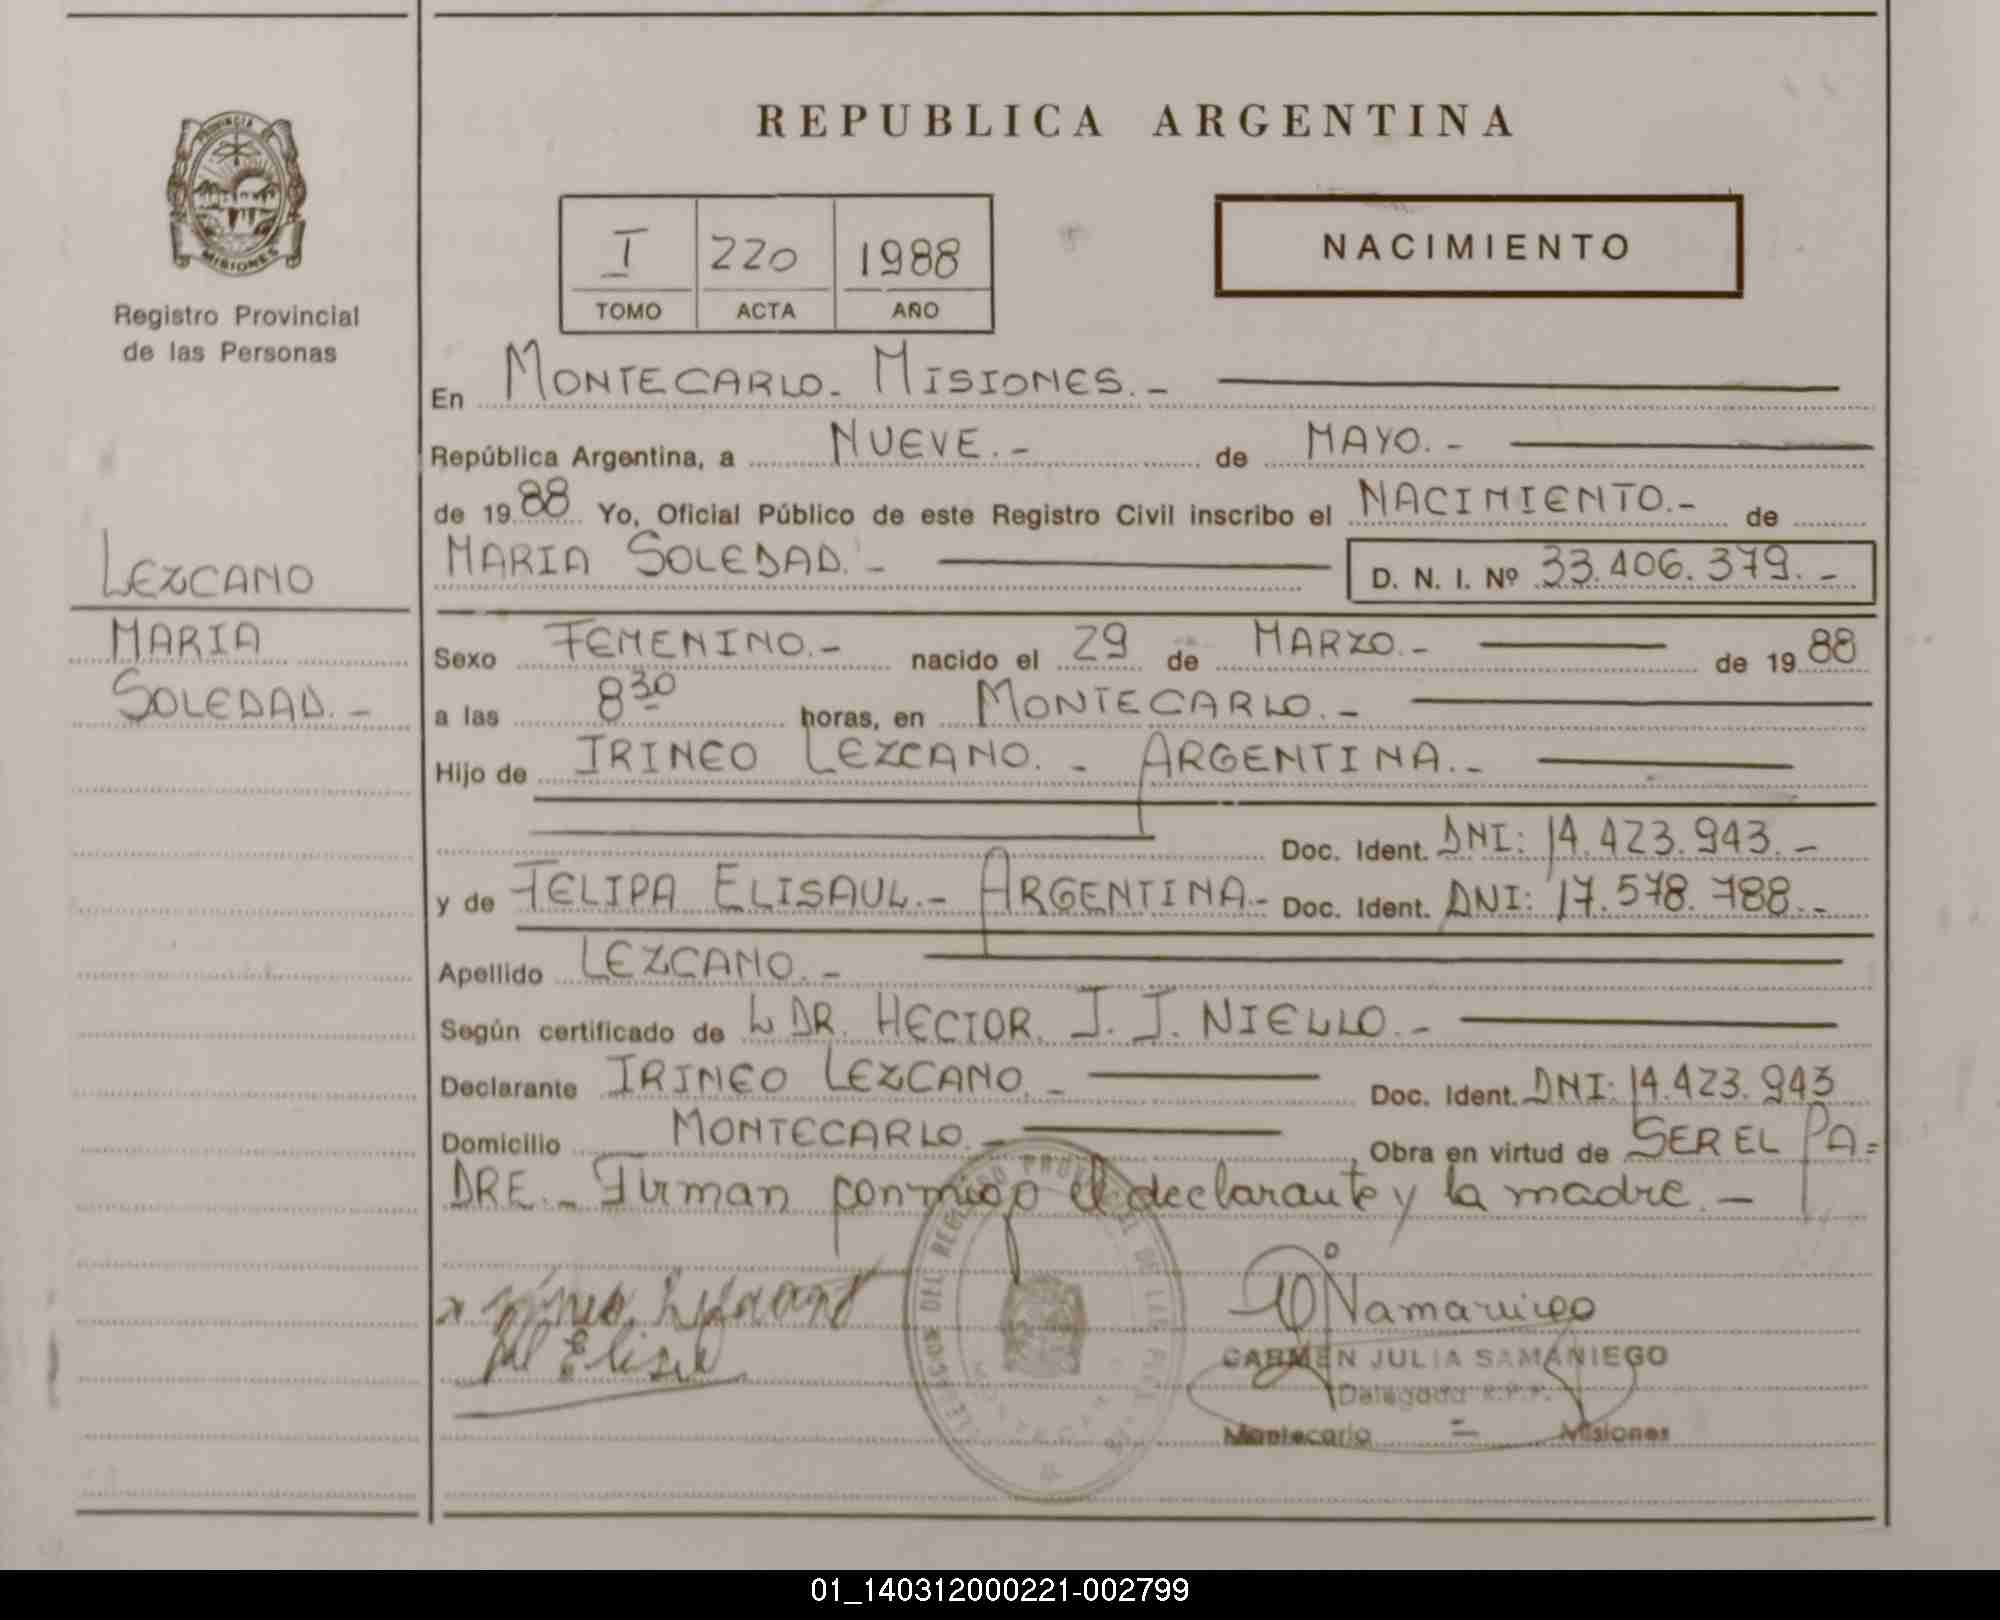 REPUBLICA ARGENTINA
PROVINCIA DE
MISIONES
Registro Provincial
de las Personas
I 220 1988
TOMO ACTA AÑO
NACIMIENTO
En MONTECARLO. MISIONES.-
República Argentina, a NUEVE.- de MAYO.-
de 1988 Yo, Oficial Público de este Registro Civil inscribo el NACIMIENTO.- de
MARIA SOLEDAD.- D. N. I. Nº 33.406.379.-
LEZCANO
MARIA
SOLEDAD.-
Sexo FEMENINO.- nacido el 29 de MARZO.- de 1988
a las 8 30 horas, en MONTECARLO.-
Hijo de IRINEO LEZCANO.- ARGENTINA.-
Doc. Ident. DNI: 14.423.943.-
y de FELIPA ELISAUL.- ARGENTINA.- Doc. Ident. DNI: 17.578.788.-
Apellido LEZCANO.-
Según certificado de DR. HECTOR. J. J. NIELLO.-
Declarante IRINEO LEZCANO.- Doc. Ident. DNI: 14.423.943
Domicilio MONTECARLO.- Obra en virtud de SER EL PA=
DRE.- Firman conmigo el declarante y la madre.-
CARMEN JULIA SAMANIEGO
Delegada R.P.P.
Montecarlo - Misiones
01_140312000221-002799